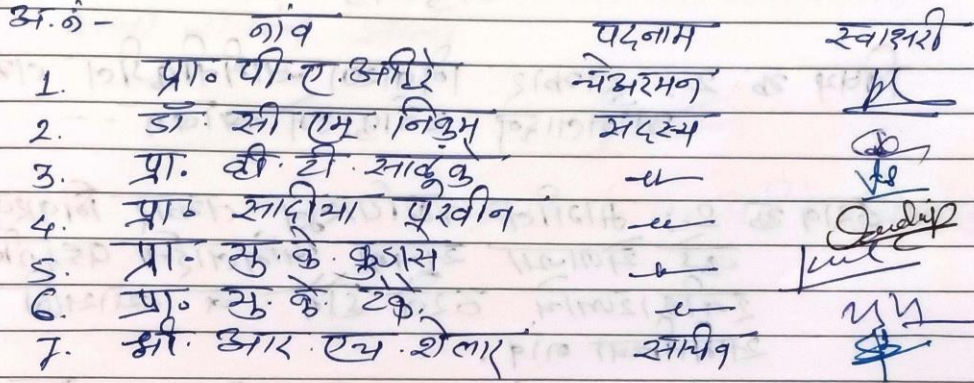 अ.नं- नांव पदनाम स्वाक्षरी
1. प्रा. पी ए अहिरे चेअरमन
2. डॉ. सी एम. निकुम सदस्य
3. प्रा. व्ही. टी. साळुंके -॥-
4. प्रा. सादीया परवीन -॥-
5. प्रा. सु के. कुवास -॥-
6. प्रा. सु के टेके. -॥-
7. श्री. आर. एच. शेलार सचिव